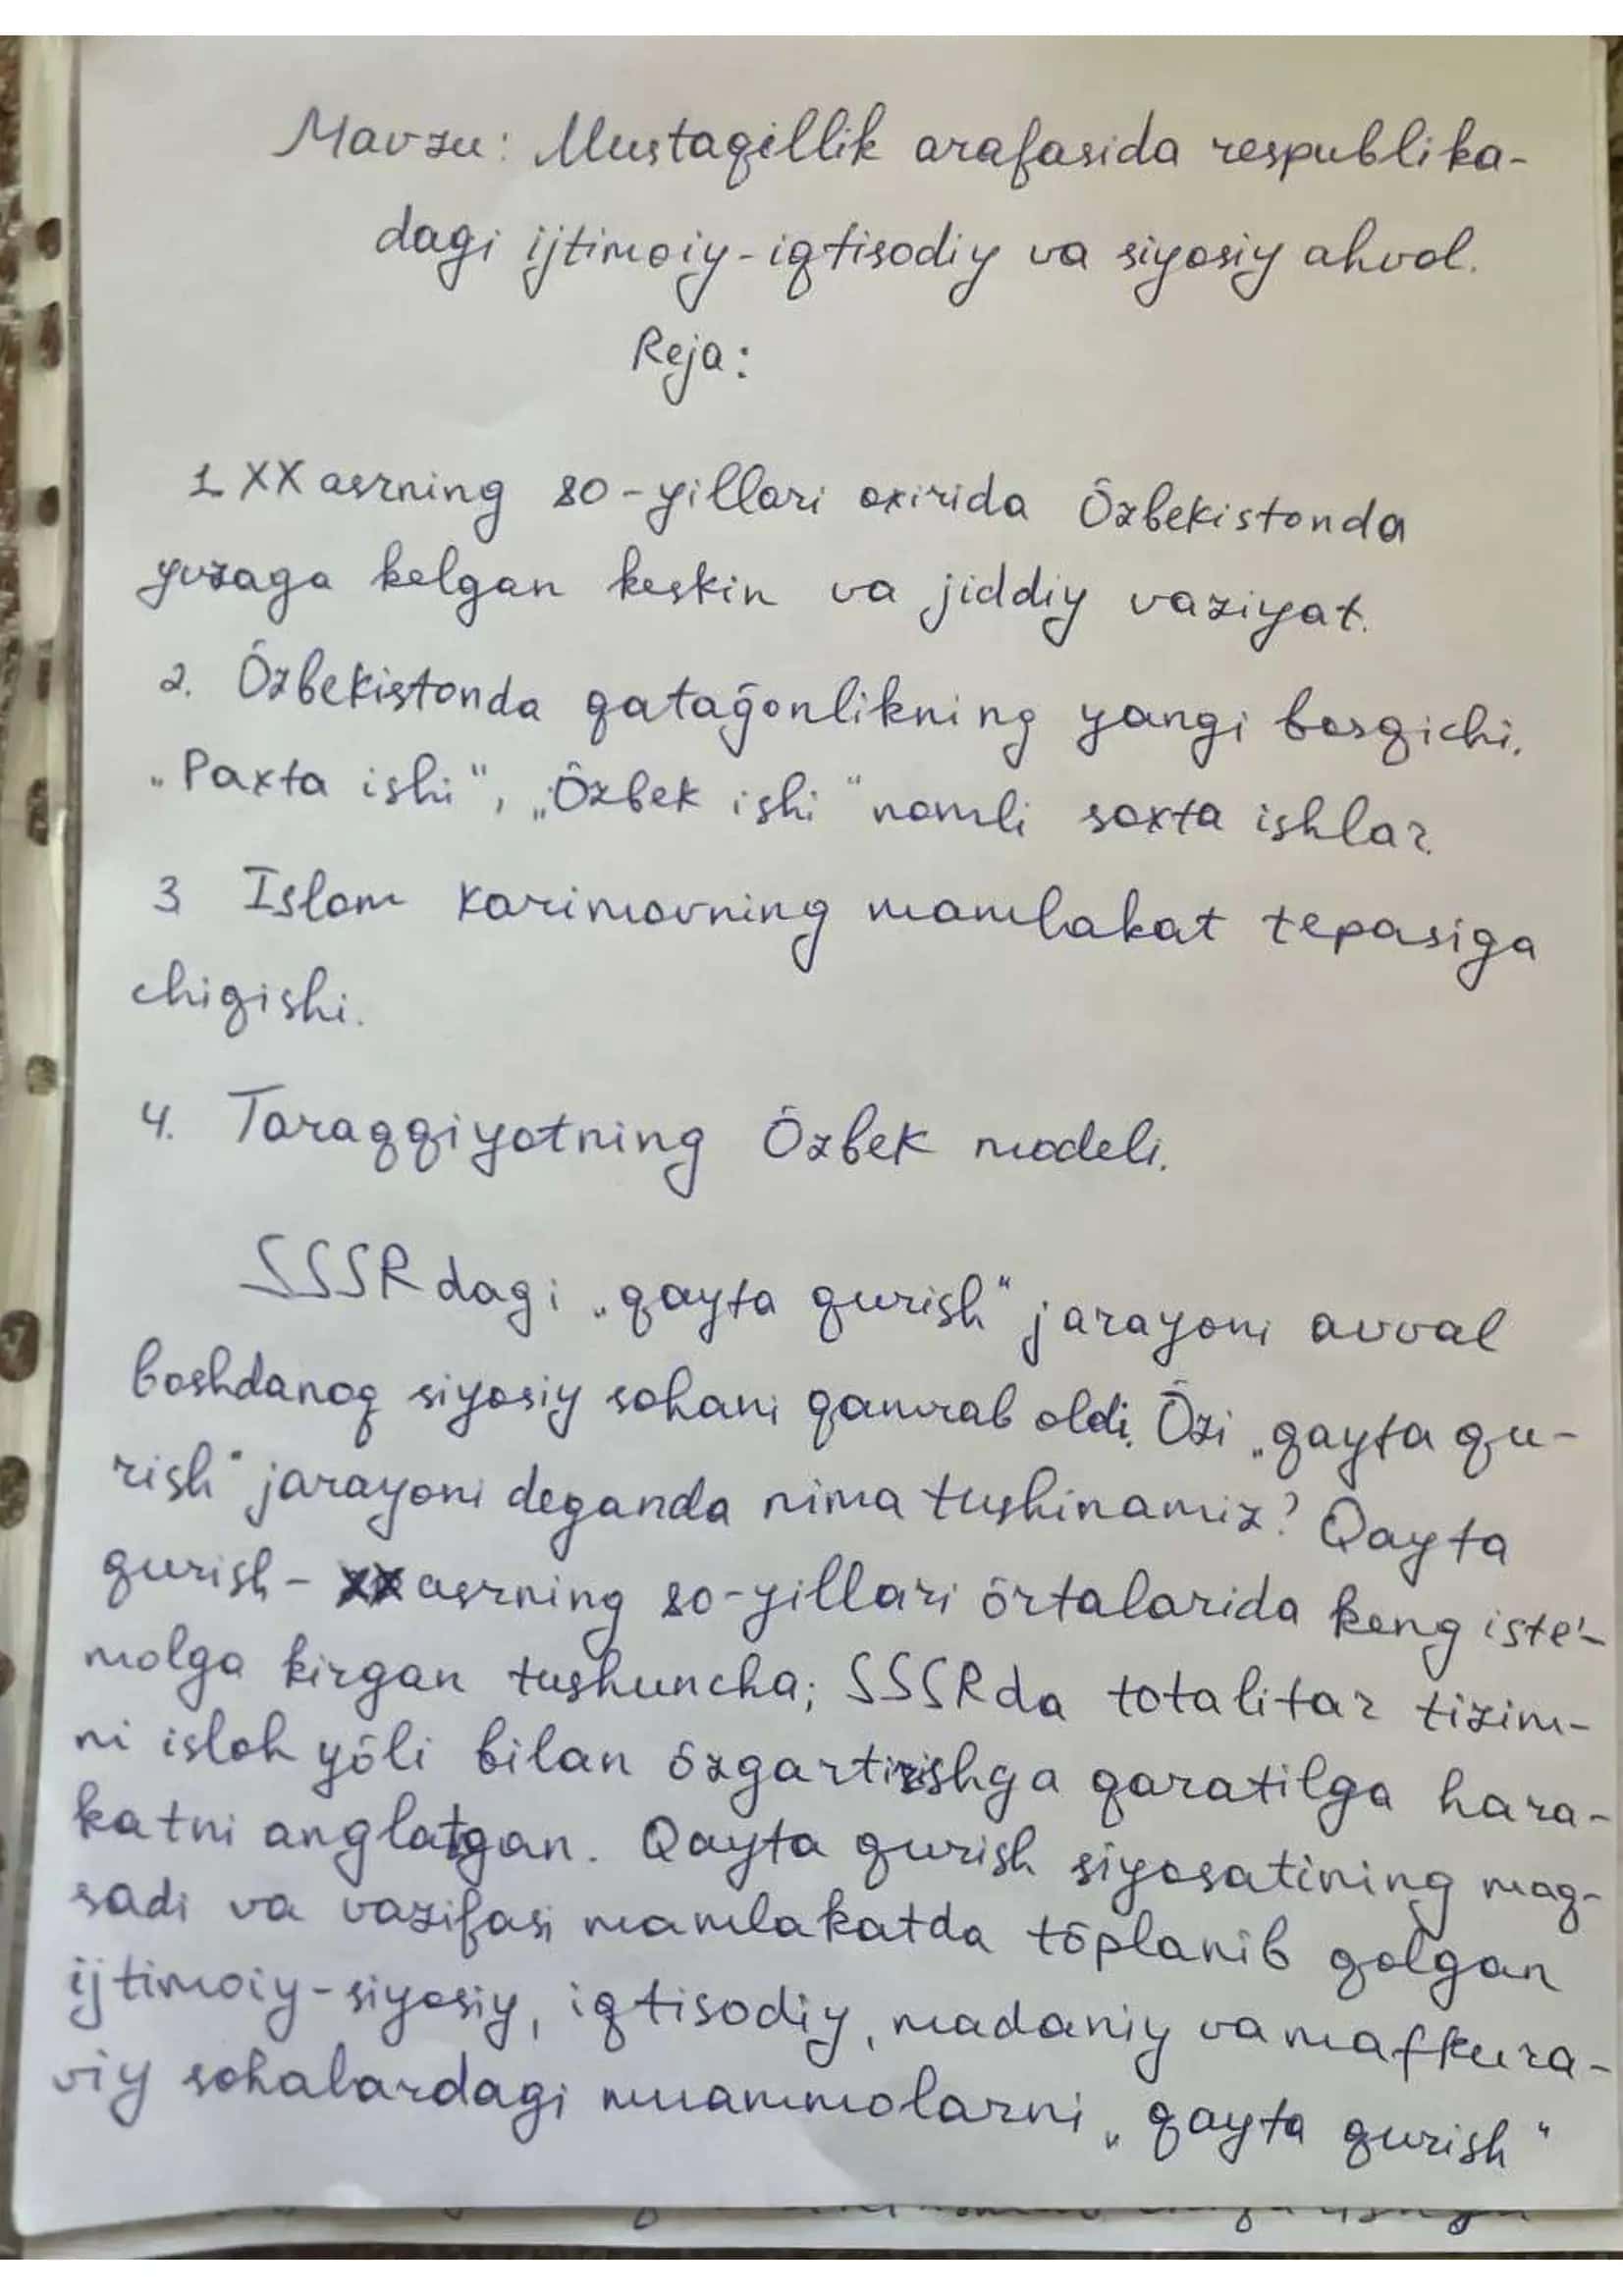 Mavzu: Mustaqillik arafasida respublika-
dagi ijtimoiy-iqtisodiy va siyosiy ahvol.
Reja:
1 XX asrning 80-yillari oxirida Õzbekistonda
yuzaga kelgan keskin va jiddiy vaziyat.
2. Õzbekistonda qatag̃onlikning yangi bosqichi.
„Paxta ishi", „Õzbek ishi" nomli soxta ishlar.
3 Islom Karimovning mamlakat tepasiga
chiqishi.
4. Taraqqiyotning Õzbek modeli.
SSSRdagi „qayta qurish" jarayoni avval
boshdanoq siyosiy sohani qamrab oldi. Õzi „qayta qu-
rish" jarayoni deganda nima tushinamiz? Qayta
qurish - XX asrning 80-yillari õrtalarida keng iste'-
molga kirgan tushuncha; SSSRda totalitar tizim-
ni isloh yõli bilan õzgartirishga qaratilga hara-
katni anglatgan. Qayta qurish siyosatining maq-
sadi va vazifasi mamlakatda tõplanib qolgan
ijtimoiy-siyosiy, iqtisodiy, madaniy va mafkura-
viy sohalardagi muammolarni „qayta qurish"